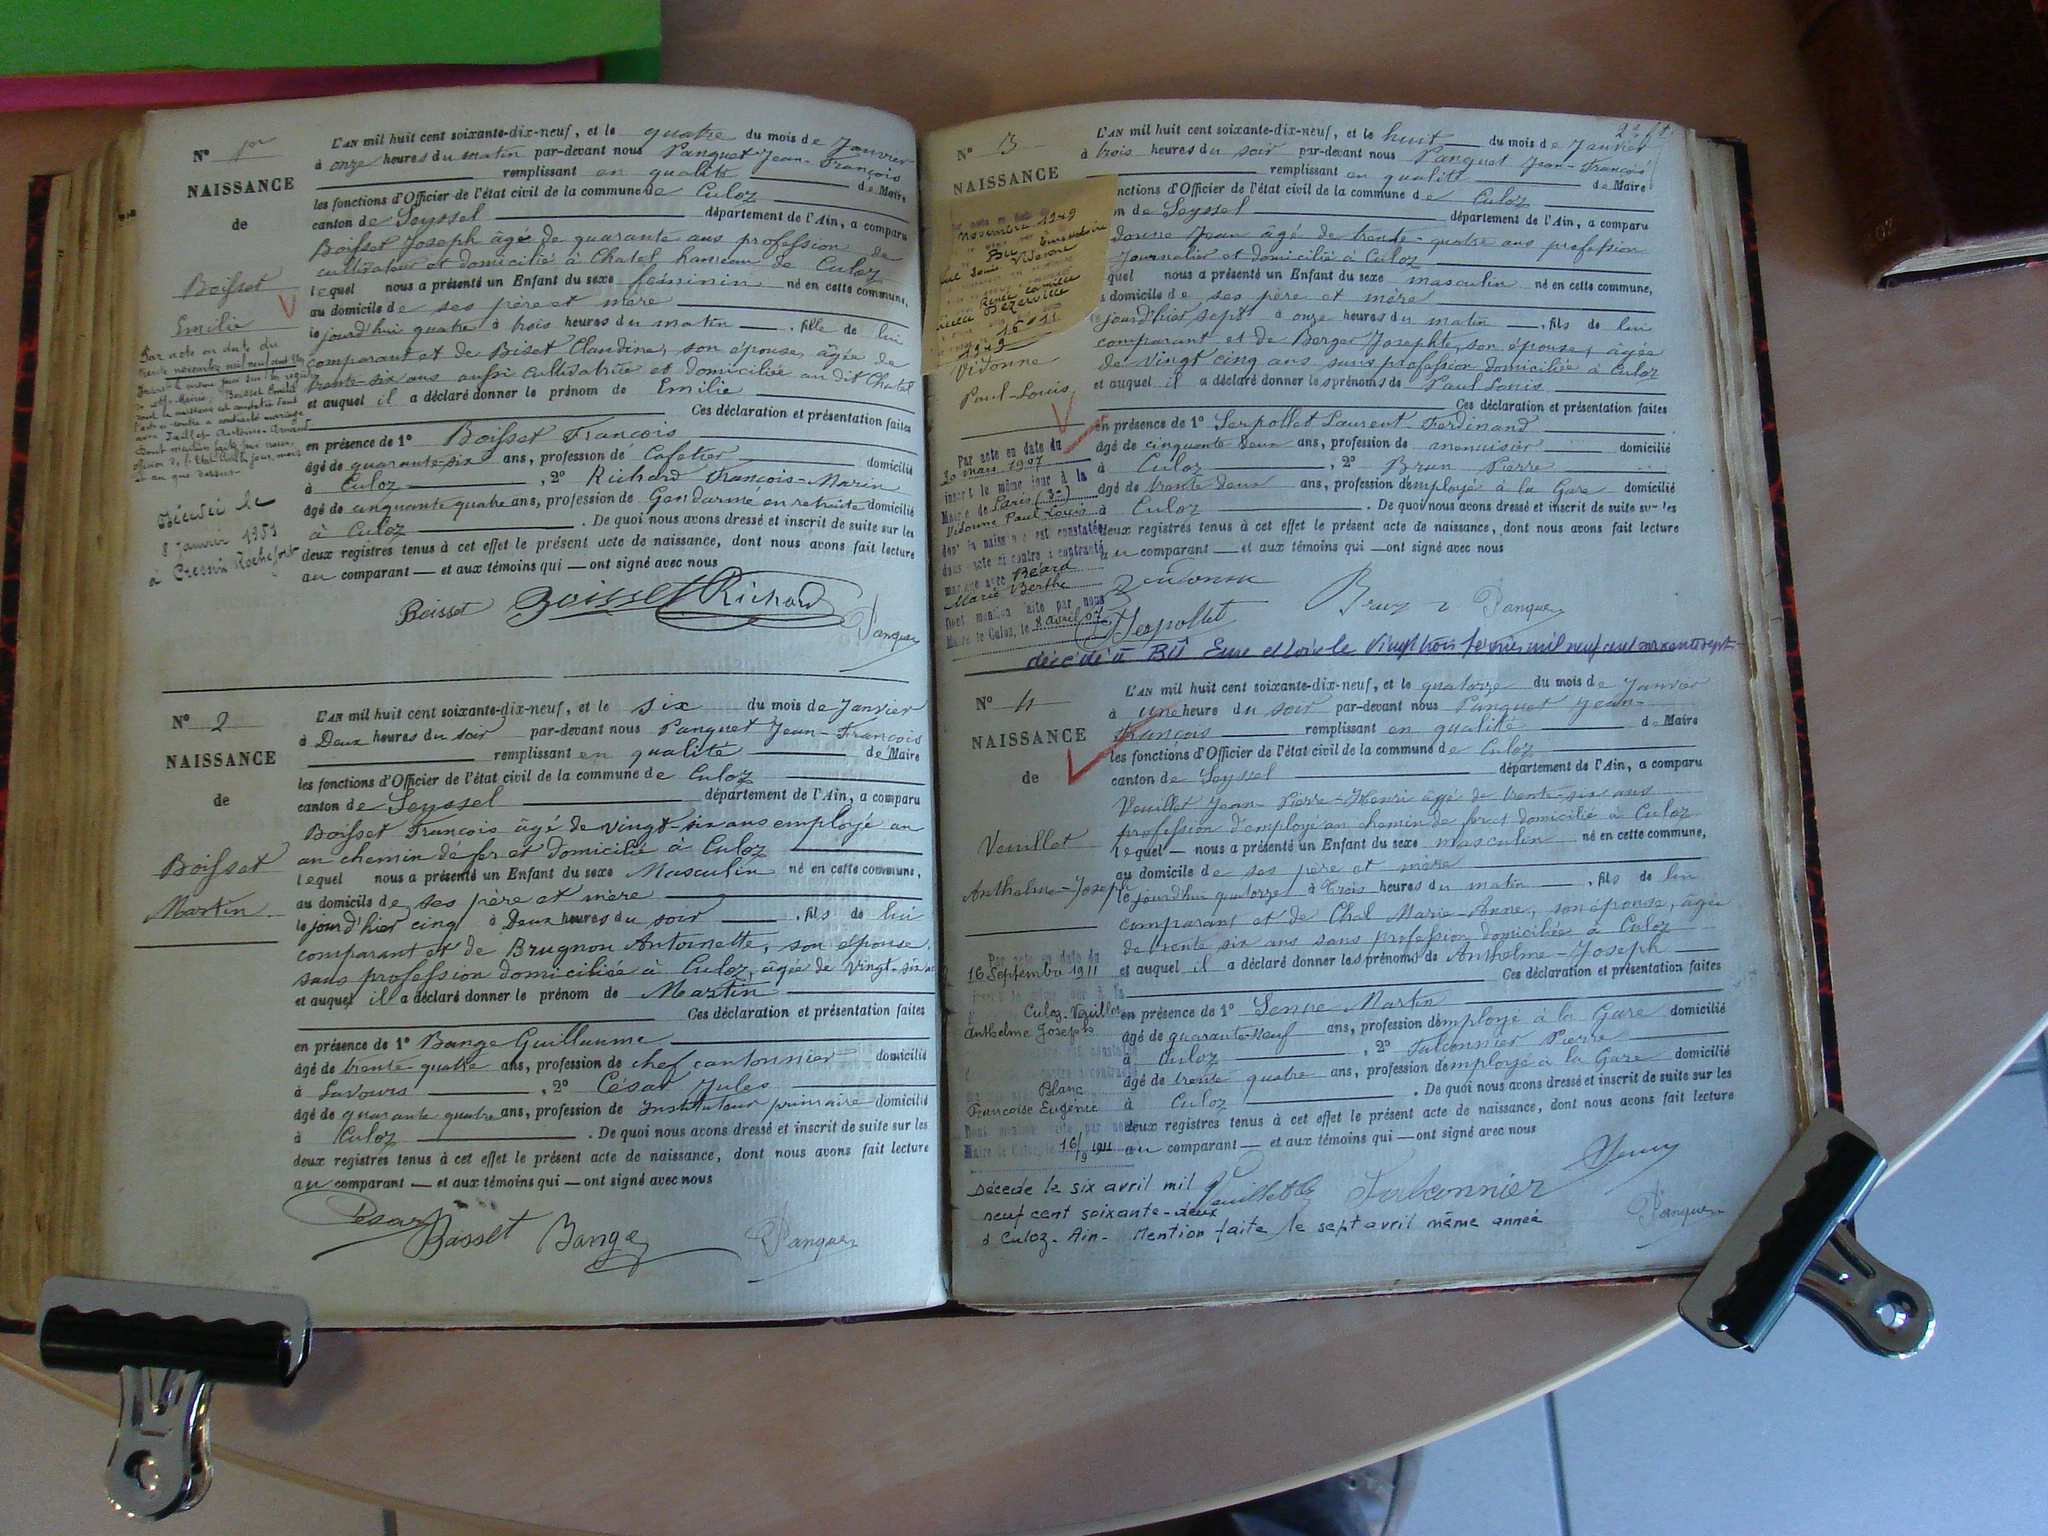 N° 1er
NAISSANCE
de
Boisset
Emilie
Par acte en date du
Décédée le
8 Janvier 1959
à Cressin Rochefort
L'AN mil huit cent soixante-dix-neuf, et le quatre du mois de Janvier
à onze heures du matin par-devant nous Panquet Jean-François
remplissant en qualité de Maire
les fonctions d'Officier de l'état civil de la commune de Culoz
canton de Seyssel département de l'Ain, a comparu
Boisset Joseph âgé de quarante ans profession de
cultivateur et domicilié à Chatel hameau de Culoz
lequel nous a présenté un Enfant du sexe féminin né en cette commune,
au domicile de ses père et mère
le jourd'hui quatre à trois heures du matin , fille de lui
comparant et de Biset Claudine, son épouse, âgée de
trente-six ans aussi cultivatrice et domiciliée au dit Chatel
et auquel il a déclaré donner le prénom de Emilie
Ces déclaration et présentation faites
en présence de 1° Boisset François
âgé de quarante-six ans, profession de Cafetier domicilié
à Culoz , 2° Richard François-Marin
âgé de cinquante quatre ans, profession de Gendarme en retraite domicilié
à Culoz . De quoi nous avons dressé et inscrit de suite sur les
deux registres tenus à cet effet le présent acte de naissance, dont nous avons fait lecture
au comparant — et aux témoins qui — ont signé avec nous
Boisset Boisset Richard Panquet
N° 2
NAISSANCE
de
Boisset
Martin
L'AN mil huit cent soixante-dix-neuf, et le six du mois de Janvier
à Deux heures du soir par-devant nous Panquet Jean-François
remplissant en qualité de Maire
les fonctions d'Officier de l'état civil de la commune de Culoz
canton de Seyssel département de l'Ain, a comparu
Boisset François âgé de vingt-six ans employé au
au chemin de fer et domicilié à Culoz
lequel nous a présenté un Enfant du sexe Masculin né en cette commune,
au domicile de ses père et mère
le jour d'hier cinq à Deux heures du soir , fils de lui
comparant et de Brugnon Antoinette, son épouse,
sans profession domiciliée à Culoz, âgée de vingt-six
et auquel il a déclaré donner le prénom de Martin
Ces déclaration et présentation faites
en présence de 1° Bange Guillaume
âgé de trente quatre ans, profession de chef cantonnier domicilié
à Lavours , 2° César Jules
âgé de quarante quatre ans, profession de Instituteur primaire domicilié
à Culoz . De quoi nous avons dressé et inscrit de suite sur les
deux registres tenus à cet effet le présent acte de naissance, dont nous avons fait lecture
au comparant — et aux témoins qui — ont signé avec nous
Cesar Basset Bange Panquet
N° 3
NAISSANCE
novembre 1949
Bu Eure et Loir
Vidonne
Paul-Louis
Par acte en date du
30 mars 1907
inscrit le même jour à la
Mairie de Paris (3e)
Vidonne Paul Louis
dont la naissance est constatée
dans l'acte ci contre a contracté
mariage avec Béard
Marie Berthe
Dont mention faite par nous
Maire de Culoz, le 8 avril 07
2e ft.
L'AN mil huit cent soixante-dix-neuf, et le huit du mois de Janvier
à trois heures du soir par-devant nous Panquet Jean-François
remplissant en qualité de Maire
fonctions d'Officier de l'état civil de la commune de Culoz
de Seyssel département de l'Ain, a comparu
Jean âgé de trente-quatre ans profession
Journalier et domicilié à Culoz
nous a présenté un Enfant du sexe masculin né en cette commune,
domicile de ses père et mère
le jour d'hier sept à onze heures du matin , fils de lui
comparant et de Berger Josephte, son épouse, âgée
de vingt cinq ans sans profession domiciliée à Culoz
et auquel il a déclaré donner les prénoms de Paul Louis
Ces déclaration et présentation faites
en présence de 1° Serpollet Laurent-Ferdinand
âgé de cinquante deux ans, profession de menuisier domicilié
à Culoz , 2° Brun Pierre
âgé de trente deux ans, profession d'employé à la Gare domicilié
à Culoz . De quoi nous avons dressé et inscrit de suite sur les
deux registres tenus à cet effet le présent acte de naissance, dont nous avons fait lecture
au comparant — et aux témoins qui — ont signé avec nous
Vidonne Brun Panquet
Serpollet
décédé à Bû Eure et Loir le vingt trois février mil neuf cent soixante sept
N° 4
NAISSANCE
de
Veuillet
Anthelme-Joseph
Par acte en date du
16 Septembre 1911
Culoz. Veuillet
Anthelme Joseph
Blanc
Francoise Eugénie
Dont mention faite par nous
16/9 1911
L'AN mil huit cent soixante-dix-neuf, et le quatorze du mois de Janvier
à une heure du soir par-devant nous Panquet Jean-
François remplissant en qualité de Maire
les fonctions d'Officier de l'état civil de la commune de Culoz
canton de Seyssel département de l'Ain, a comparu
Veuillet Jean-Pierre-Henri âgé de trente-six ans
profession d'employé au chemin de fer et domicilié à Culoz
lequel — nous a présenté un Enfant du sexe masculin né en cette commune,
au domicile de ses père et mère
le jourd'hui quatorze à trois heures du matin , fils de lui
comparant et de Chal Marie-Anne, son épouse, âgée
de trente six ans sans profession domiciliée à Culoz
et auquel il a déclaré donner les prénoms de Anthelme-Joseph
Ces déclaration et présentation faites
en présence de 1° Martin
âgé de quarante-neuf ans, profession d'employé à la Gare domicilié
à Culoz , 2° Falconnier Pierre
âgé de trente quatre ans, profession d'employé à la Gare domicilié
à Culoz . De quoi nous avons dressé et inscrit de suite sur les
deux registres tenus à cet effet le présent acte de naissance, dont nous avons fait lecture
au comparant — et aux témoins qui — ont signé avec nous
Veuillet Falconnier
Panquet
Décédé le six avril mil
neuf cent soixante-deux
à Culoz - Ain - Mention faite le sept avril même année